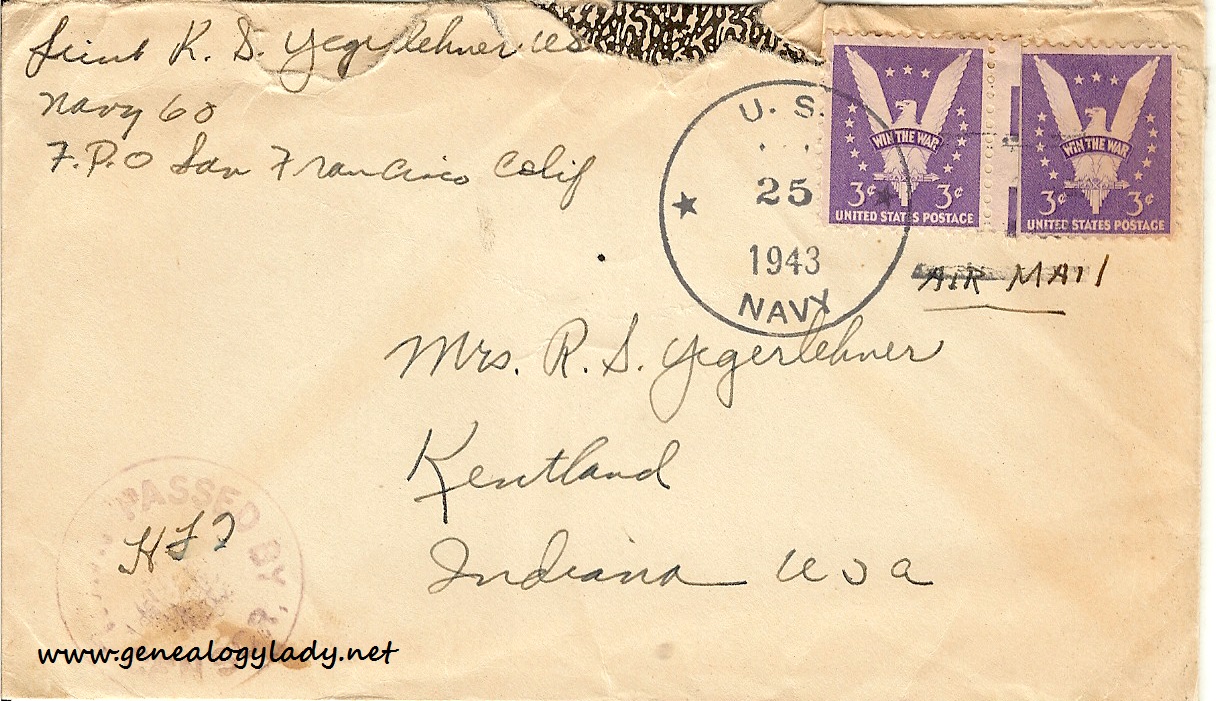 Lieut R. S. Yegerlehner US
Navy 60
F.P.O San Francisco Calif
U. S.
25
1943
NAVY
WIN THE WAR
3¢ 3¢
UNITED STATES POSTAGE
WIN THE WAR
3¢ 3¢
UNITED STATES POSTAGE
AIR MAIL
Mrs. R. S. Yegerlehner
Kentland
Indiana USA
PASSED BY
www.genealogylady.net